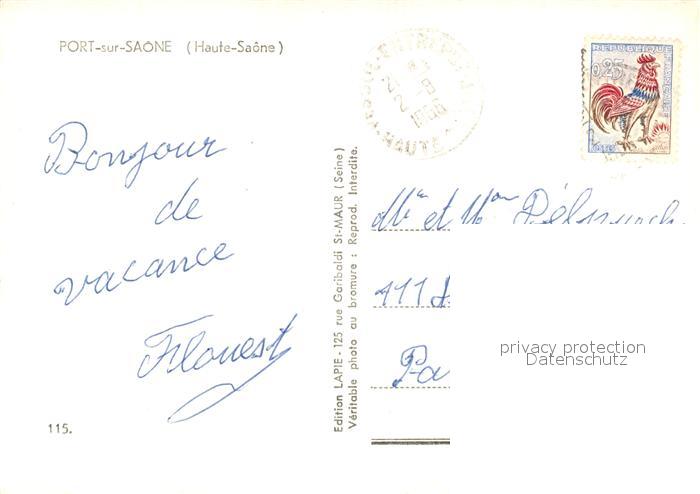 PORT-sur-SAÔNE (Haute-Saône)
Bonjour
de
vacance
Flouest
115.
Edition LAPIE - 125 rue Garibaldi St-MAUR (Seine)
Véritable photo au bromure : Reprod. Interdite.
21
2-8
1966
HAUTE
REPUBLIQUE FRANÇAISE
0,25
POSTES
Mr et Mme
111
Pa
privacy protection
Datenschutz